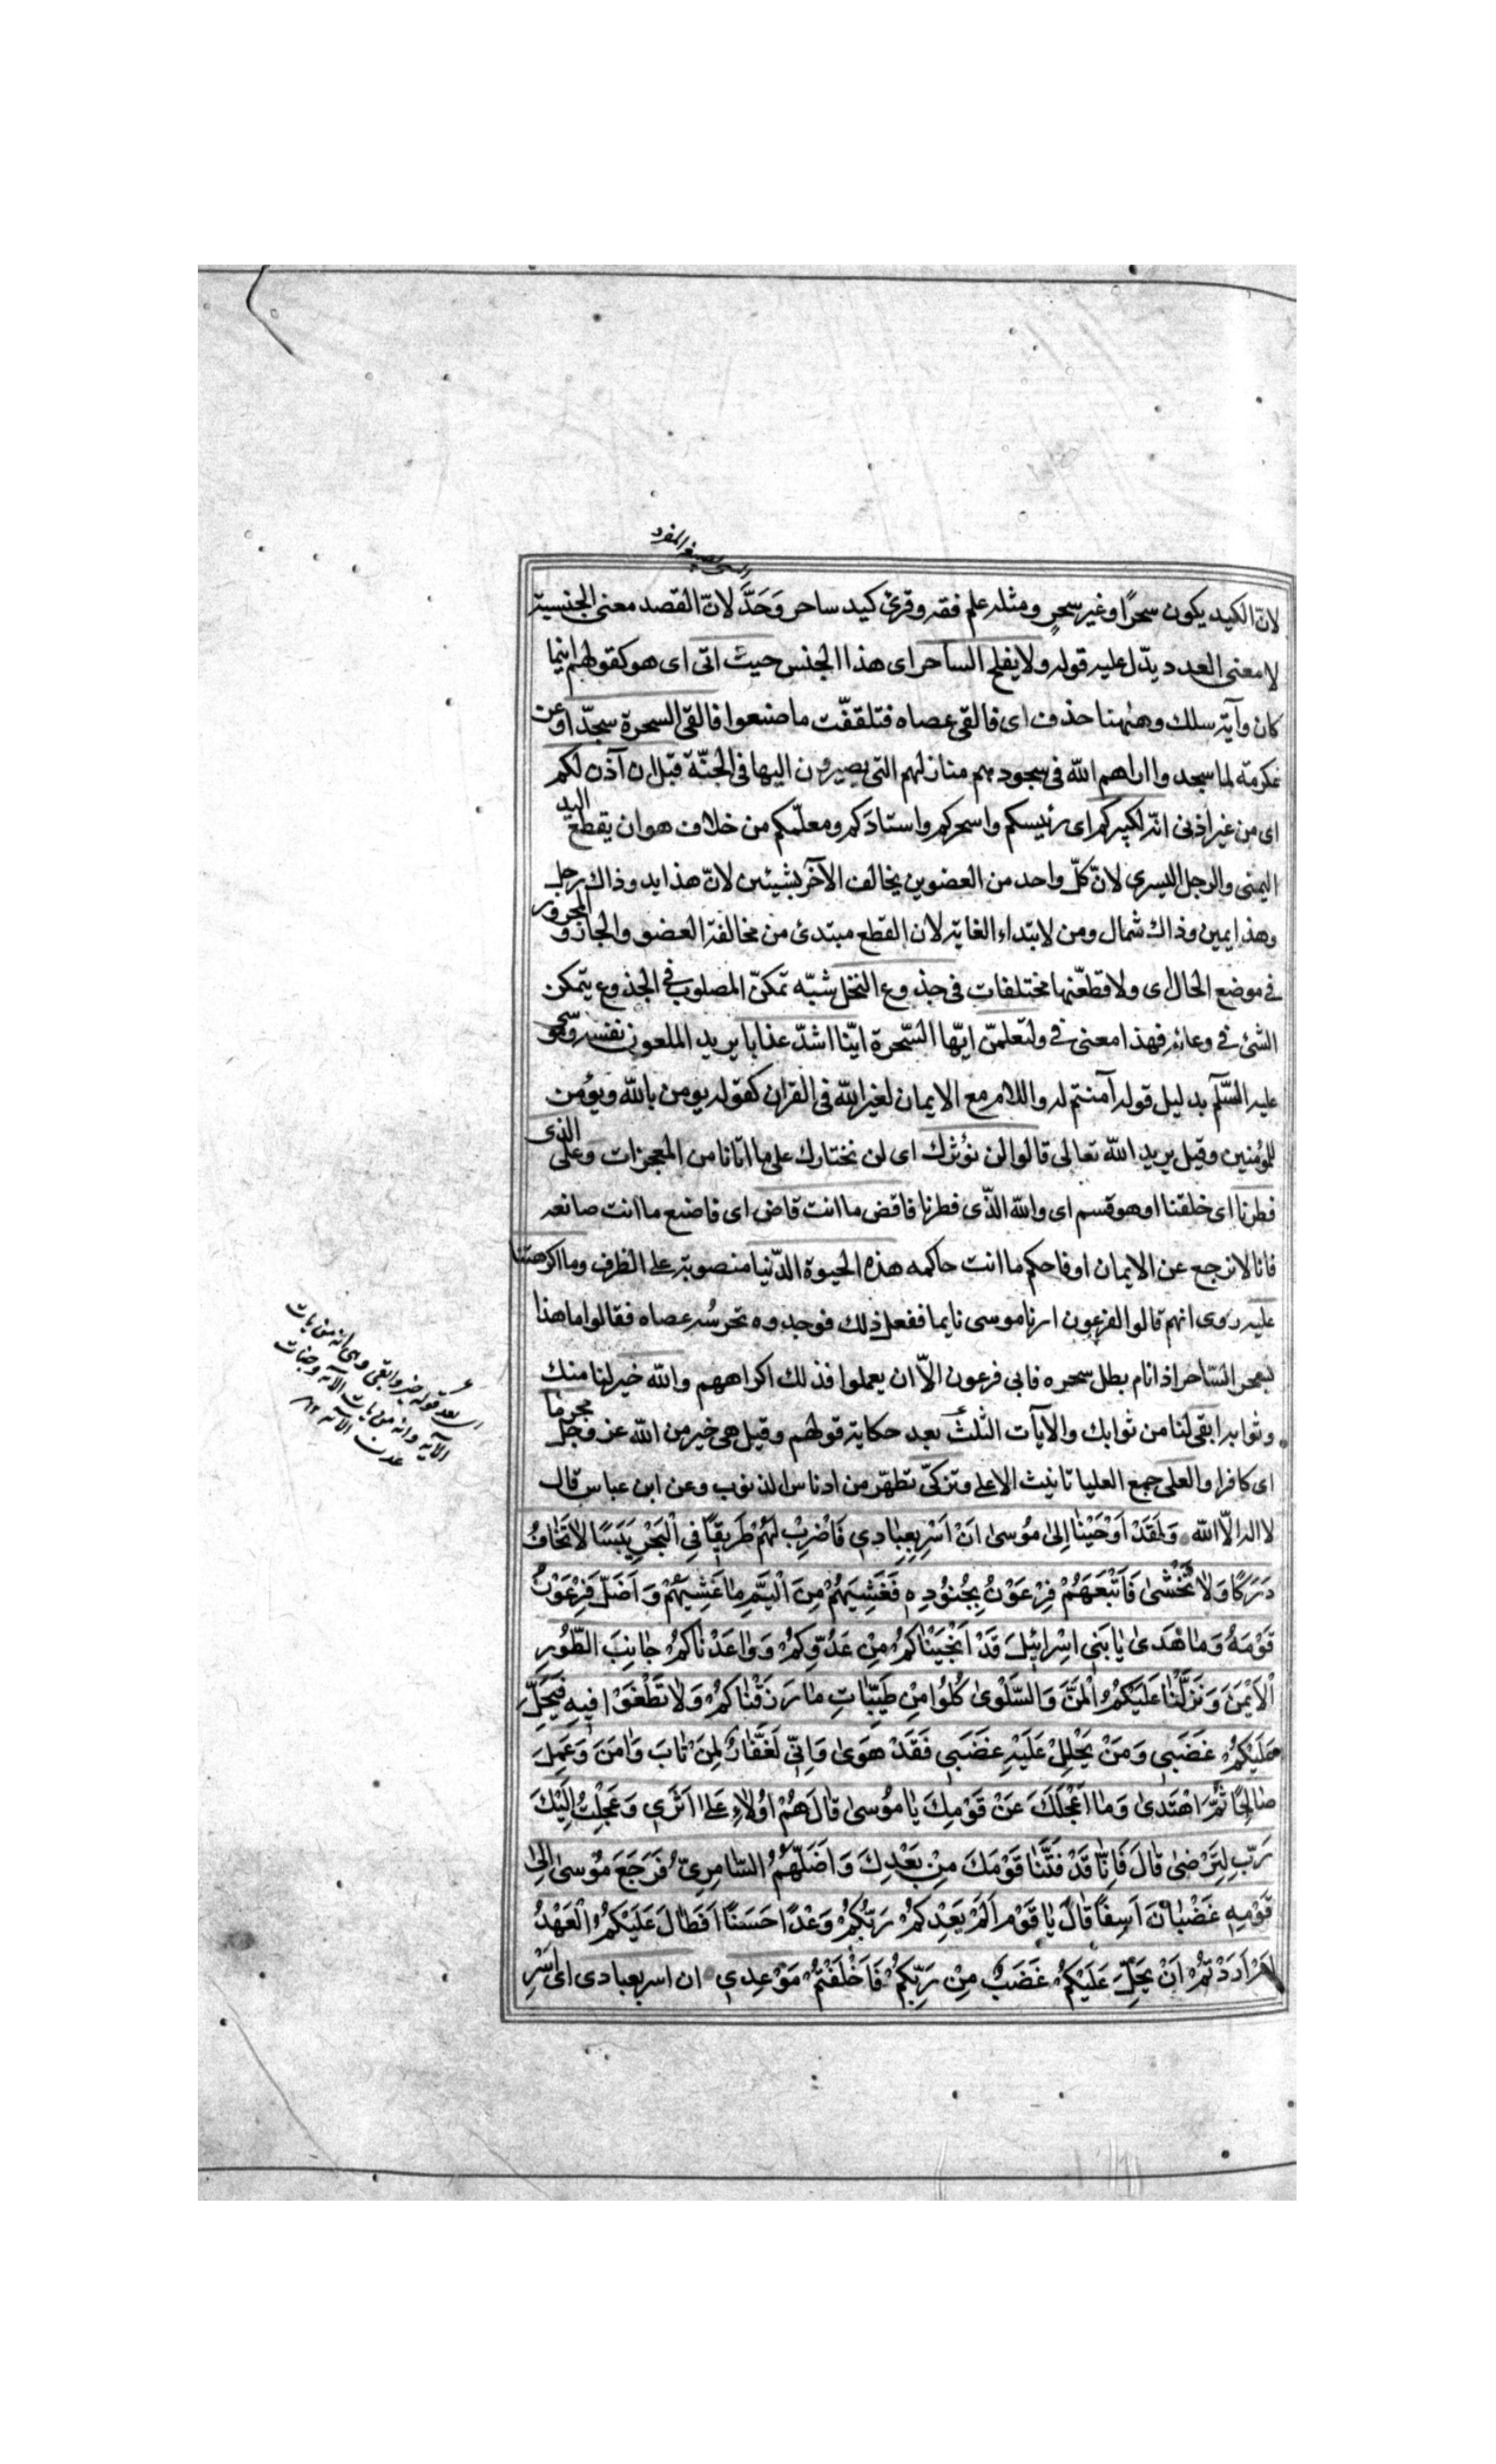 لانّ الكيد يكون سحرًا وغير سحرٍ ومثله علم فقه وقرئ كيد ساحر وَحَّدَ لانّ القصد معنى الجنسية
لا معنى العدد يدّل عليه قوله ولا يفلح الساحر اى هذا الجنس حيث اتى اى هو كقولهم اينما
كان وآية سلك وههنا حذف اى فالقى عصاه فتلقفّت ما صنعوا فالقى السحرة سجدّا وعن
عكرمة لما سجدوا اراهم الله فى سجودهم منازلهم التى يصيرون اليها فى الجنّة قبل ان آذن لكم
اى من غير اذنى انّه لكبيركم اى رئيسكم واسحركم واستادكم ومعلّمكم من خلاف هو ان يقطع اليد
اليمنى والرجل اليسرى لانّ كلّ واحد من العضوين يخالف الآخر بشيئين لانّ هذا يد وذاك رجل
وهذا يمين وذاك شمال ومن لابتداء الغاية لان القطع مبتدئ من مخالفة العضو والجار والمجرور
فى موضع الحال اى ولاقطعّنها مختلفات فى جذوع النخل شبّه تمكّن المصلوب فى الجذوع يتمكن
الشئ فى وعائه فهذا معنى فى ولتعلمنّ ايّها السّحرة ايّنا اشدّ عذابا يريد الملعون نفسه وموسى
عليه السّلم بدليل قوله آمنتم له واللام مع الايمان لغير الله فى القران كقوله يومن بالله ويؤمن
للمؤمنين وقيل يريد الله تعالى قالوا لن نؤثرك اى لن نختارك على ما اتانا من المعجزات وعلى الذى
فطرنا اى خلقنا او هو قسم اى والله الذّى فطرنا فاقض ما انت قاض اى فاصنع ما انت صانعه
فانا لا نرجع عن الايمان او فاحكم ما انت حاكمه هذه الحيوة الدّنيا منصوبة على الظرف وما اكرهتنا
عليه روى انهم قالوا لفرعون ارنا موسى نايما ففعل ذلك فوجدوه تحرسُه عصاه فقالوا ما هذا
بسحر السّاحر اذا نام بطل سحره فابى فرعون الاّ ان يعملوا فذلك اكراههم والله خير لنا منك
وثوابه ابقى لنا من ثوابك والايآت الثلث بعد حكاية قولهم وقيل هى خير من الله عز وجل مجرما
اى كافرا والعلى جمع العليا تانيث الاعلى وتزكّى تطهّر من ادناس الذنوب وعن ابن عباس قال
لا اله الاّ الله وَلَقَدْ اَوْحَيْنٰا اِلىٰ مُوسىٰ اَنْ اَسْرِ بِعِبٰادِي فَاضْرِبْ لَهُمْ طَرِيقًا فِي الْبَحْرِ يَبَسًا لاٰ تَخٰافُ
دَرَكًا وَلاٰ تَخْشىٰ فَاَتْبَعَهُمْ فِرْعَوْنُ بِجُنُودِهِ فَغَشِيَهُمْ مِنَ الْيَمِّ مٰا غَشِيَهُمْ وَاَضَلَّ فِرْعَوْنُ
قَوْمَهُ وَمٰا هَدىٰ يٰا بَنِي اِسْرٰائِيلَ قَدْ اَنْجَيْنٰاكُمْ مِنْ عَدُوِّكُمْ وَوٰاعَدْنٰاكُمْ جٰانِبَ الطُّورِ
الْاَيْمَنَ وَنَزَّلْنٰا عَلَيْكُمُ الْمَنَّ وَالسَّلْوىٰ كُلُوا مِنْ طَيِّبٰاتِ مٰا رَزَقْنٰاكُمْ وَلاٰ تَطْغَوْا فِيهِ فَيَحِلَّ
عَلَيْكُمْ غَضَبِي وَمَنْ يَحْلِلْ عَلَيْهِ غَضَبِي فَقَدْ هَوىٰ وَاِنِّي لَغَفّٰارٌ لِمَنْ تٰابَ وَاٰمَنَ وَعَمِلَ
صٰالِحًا ثُمَّ اهْتَدىٰ وَمٰا اَعْجَلَكَ عَنْ قَوْمِكَ يٰا مُوسىٰ قٰالَ هُمْ اُولاٰءِ عَلىٰ اَثَرِي وَعَجِلْتُ اِلَيْكَ
رَبِّ لِتَرْضىٰ قٰالَ فَاِنّٰا قَدْ فَتَنّٰا قَوْمَكَ مِنْ بَعْدِكَ وَاَضَلَّهُمُ السّٰامِرِيُّ فَرَجَعَ مُوسىٰ اِلىٰ
قَوْمِهِ غَضْبٰانَ اَسِفًا قٰالَ يٰا قَوْمِ اَلَمْ يَعِدْكُمْ رَبُّكُمْ وَعْدًا حَسَنًا اَفَطٰالَ عَلَيْكُمُ الْعَهْدُ
اَمْ اَرَدْتُمْ اَنْ يَحِلَّ عَلَيْكُمْ غَضَبٌ مِنْ رَبِّكُمْ فَاَخْلَفْتُمْ مَوْعِدِي ان اسر بعبادى اى اَسْرِ
بعد قوله خير وابقى وهى انه من يات
الآية وانه من يات الآية وجنات
عدن الآية ١٢